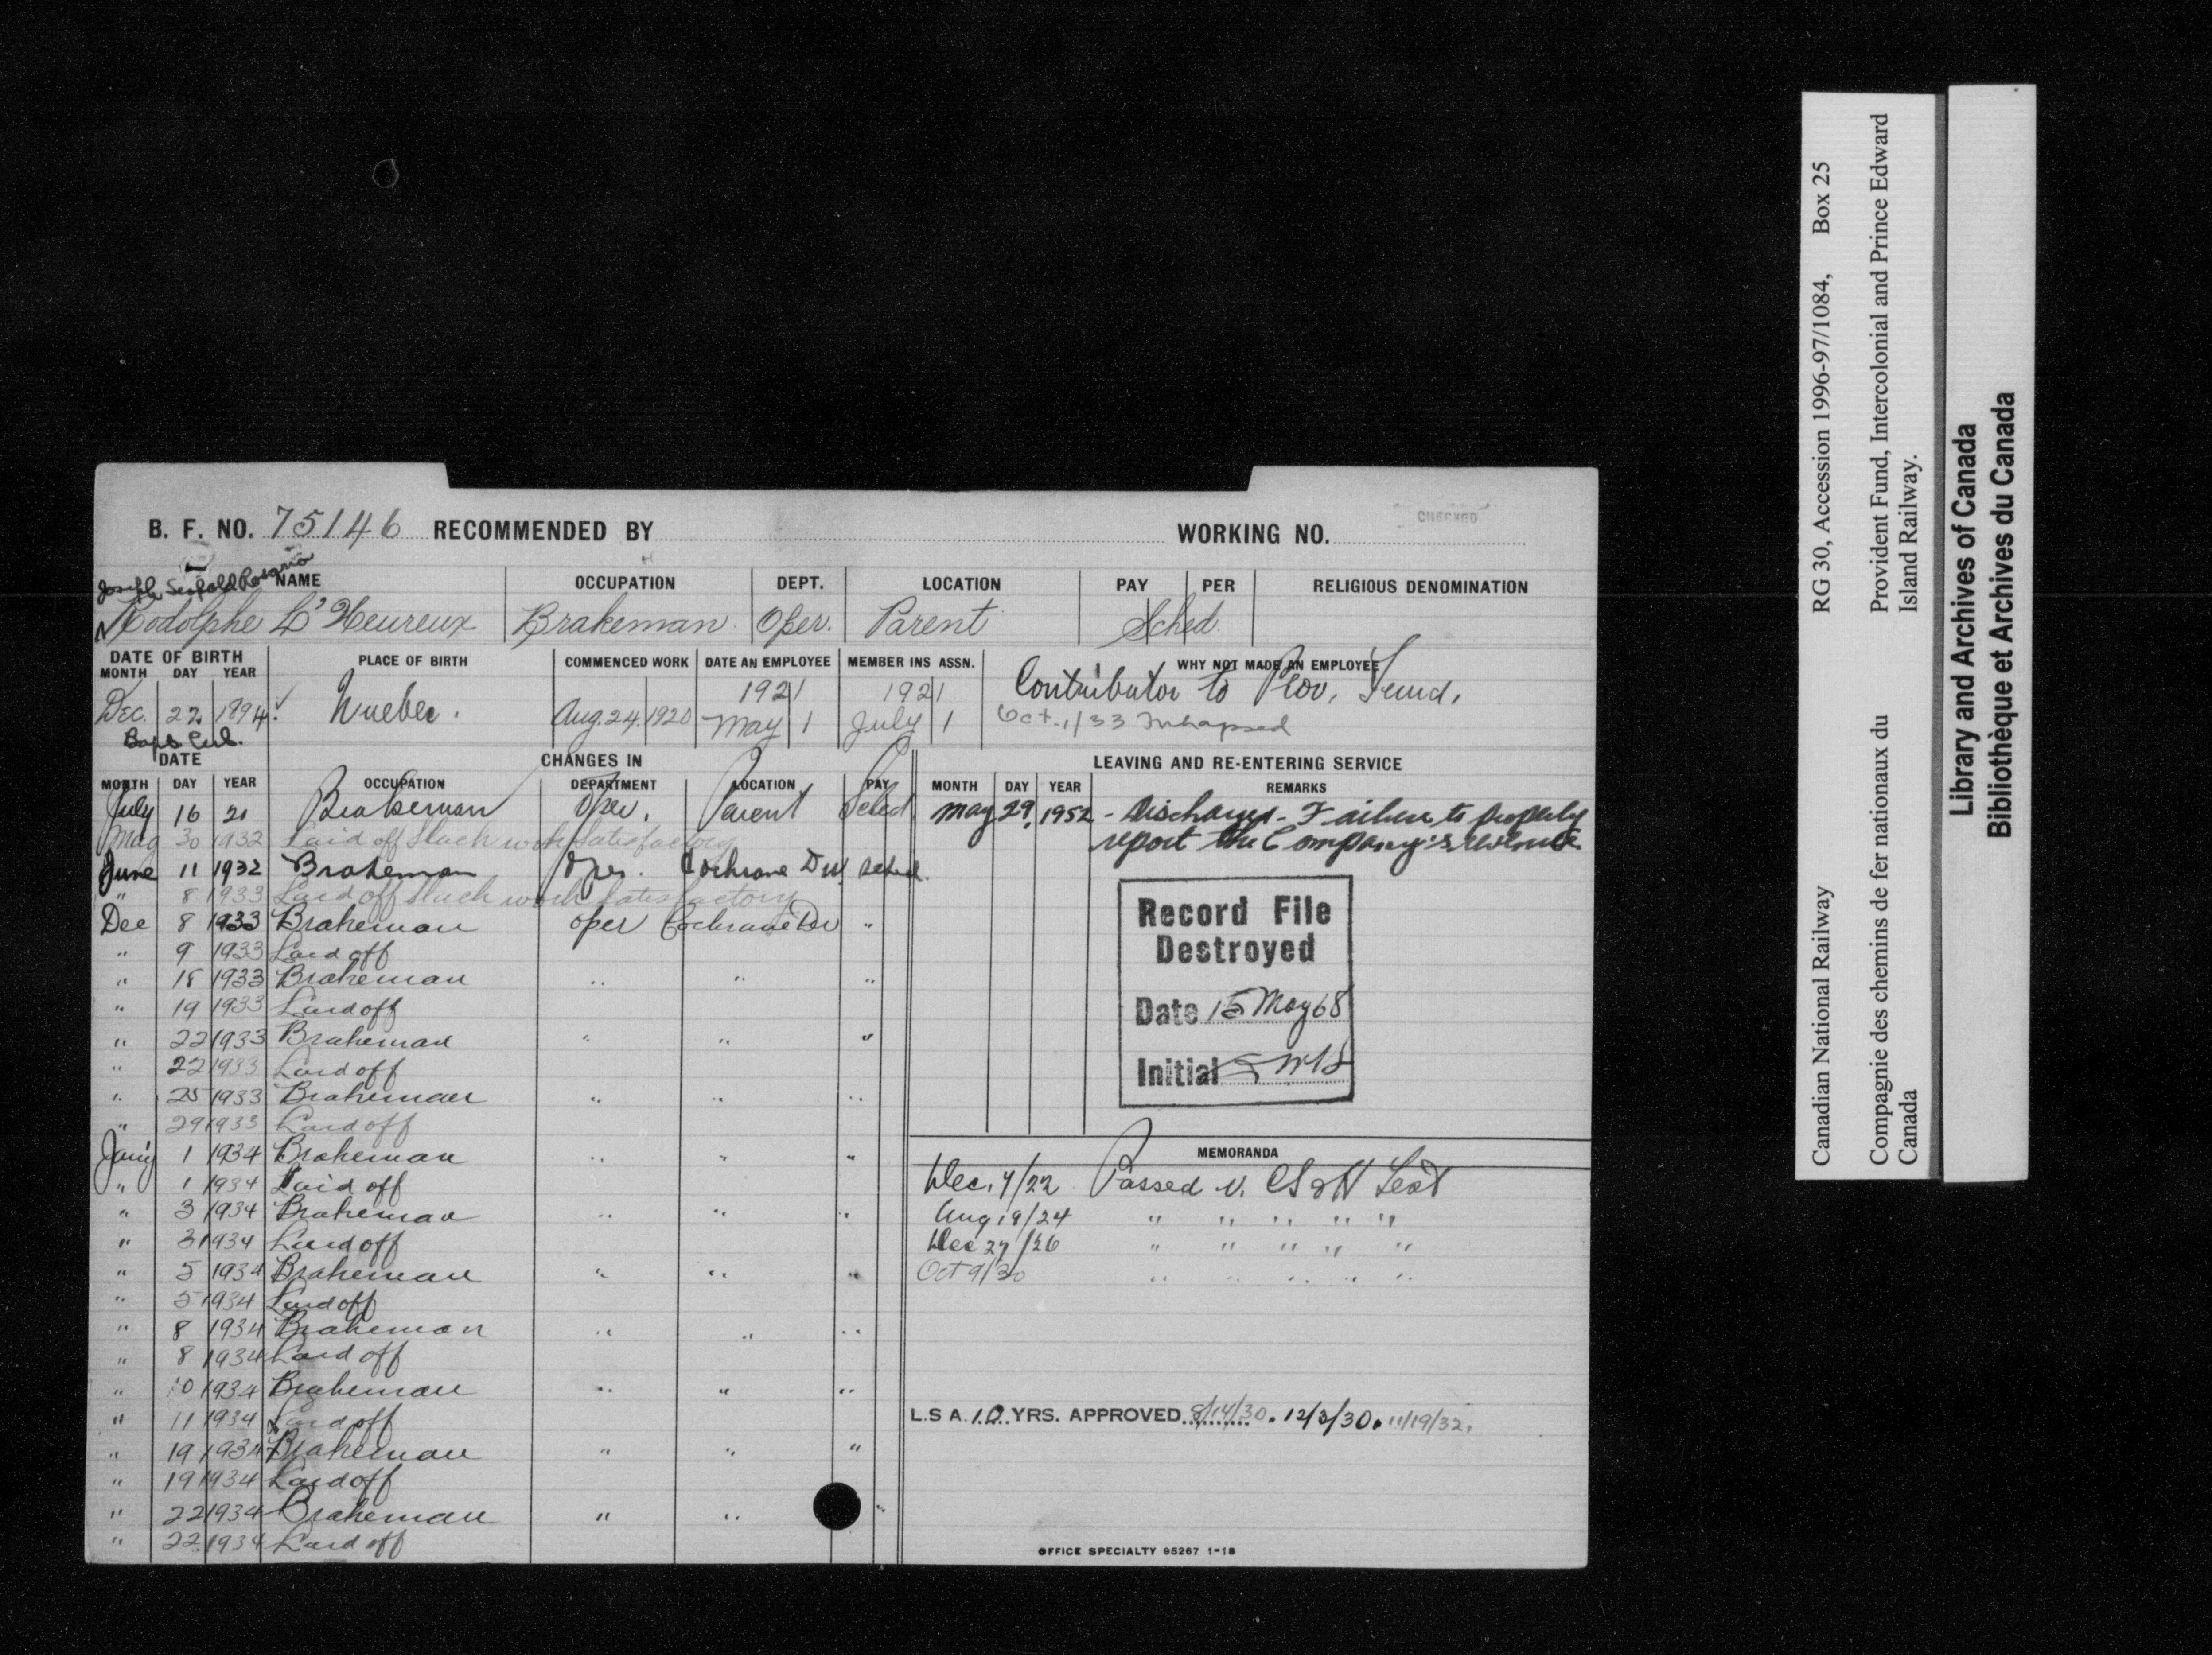 B. F. NO. 75146 RECOMMENDED BY WORKING NO.
CHECKED
Joseph Rosario
NAME OCCUPATION DEPT. LOCATION PAY PER RELIGIOUS DENOMINATION
Rodolphe L'Heureux Brakeman Oper. Parent Sched.
DATE OF BIRTH PLACE OF BIRTH COMMENCED WORK DATE AN EMPLOYEE MEMBER INS ASSN. WHY NOT MADE AN EMPLOYEE
MONTH DAY YEAR
Contributor to Prov. Fund.
Dec. 22 1894. Quebec. Aug. 24. 1920 1921 May 1 1921 July 1 Oct. 1/33
Bapt. Cert.
DATE CHANGES IN LEAVING AND RE-ENTERING SERVICE
MONTH DAY YEAR OCCUPATION DEPARTMENT LOCATION PAY MONTH DAY YEAR REMARKS
July 16 21 Brakeman Oper. Parent Sched. May 29, 1952 - Discharged - Failure to properly
report the Company's revenue.
May 30 1932 Laid off Slack work Satisfactory
June 11 1932 Brakeman Oper. Cochrane Div. Sched.
" 8 1933 Laid off Slack work Satisfactory
Dec 8 1933 Brakeman Oper Cochrane Div "
" 9 1933 Laid off
" 18 1933 Brakeman " " "
" 19 1933 Laid off
" 22 1933 Brakeman " " "
" 22 1933 Laid off
" 25 1933 Brakeman " " "
" 29 1933 Laid off
Jan'y 1 1934 Brakeman " " "
" 1 1934 Laid off
" 3 1934 Brakeman " " "
" 3 1934 Laid off
" 5 1934 Brakeman " " "
" 5 1934 Laid off
" 8 1934 Brakeman " " "
" 8 1934 Laid off
" 10 1934 Brakeman " " "
" 11 1934 Laid off
" 19 1934 Brakeman " " "
" 19 1934 Laid off
" 22 1934 Brakeman " " "
" 22 1934 Laid off
Record File
Destroyed
Date 15 May 68
Initial
MEMORANDA
Dec. 7/22 Passed V. CS & H Test
Aug 19/24 " " " " "
Dec 27/26 " " " " "
Oct 9/30 " " " " "
L.S A. 10 YRS. APPROVED 8/14/30. 12/3/30. 11/19/32.
OFFICE SPECIALTY 95267 1-18
Canadian National Railway RG 30, Accession 1996-97/1084, Box 25
Compagnie des chemins de fer nationaux du Provident Fund, Intercolonial and Prince Edward
Canada Island Railway.
Library and Archives of Canada
Bibliothèque et Archives du Canada